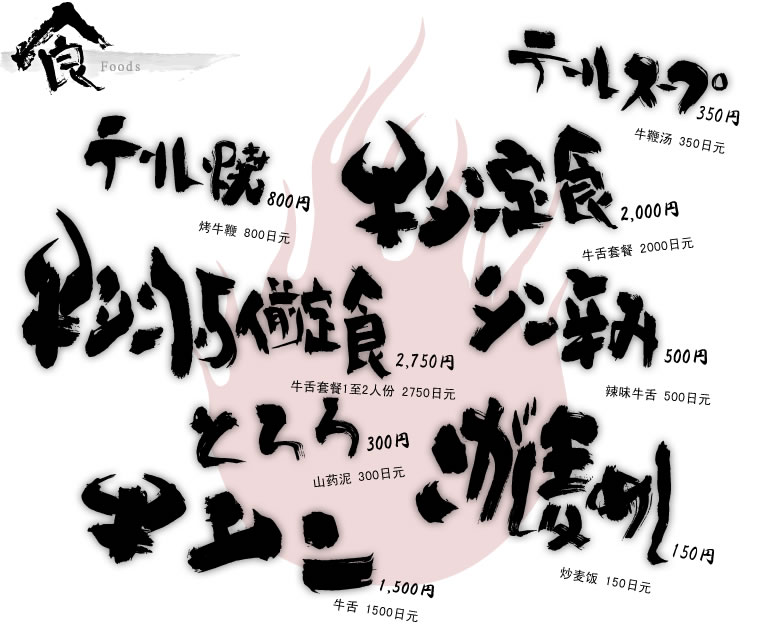 食
Foods
テールスープ
350円
牛鞭汤 350日元
テール焼
800円
烤牛鞭 800日元
牛タン定食
2,000円
牛舌套餐 2000日元
牛タン1.5人前定食
2,750円
牛舌套餐1至2人份 2750日元
タン辛み
500円
辣味牛舌 500日元
とろろ
300円
山药泥 300日元
麦めし
150円
炒麦饭 150日元
牛タン
1,500円
牛舌 1500日元